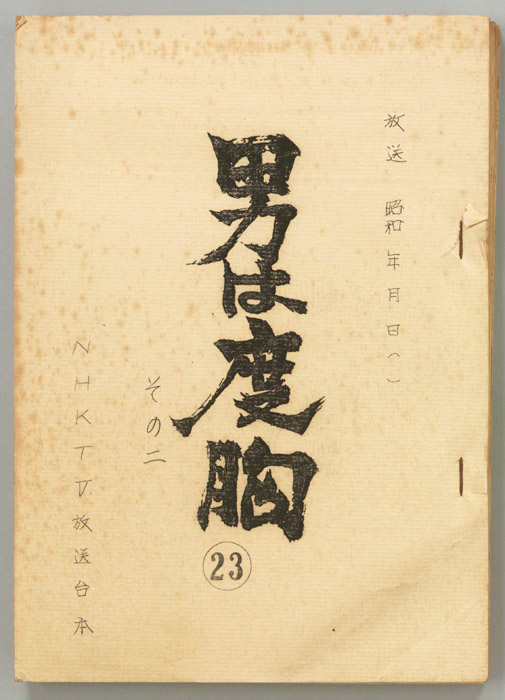 放送 昭和 年 月 日( )
男は度胸
23
その二
NHKTV放送台本